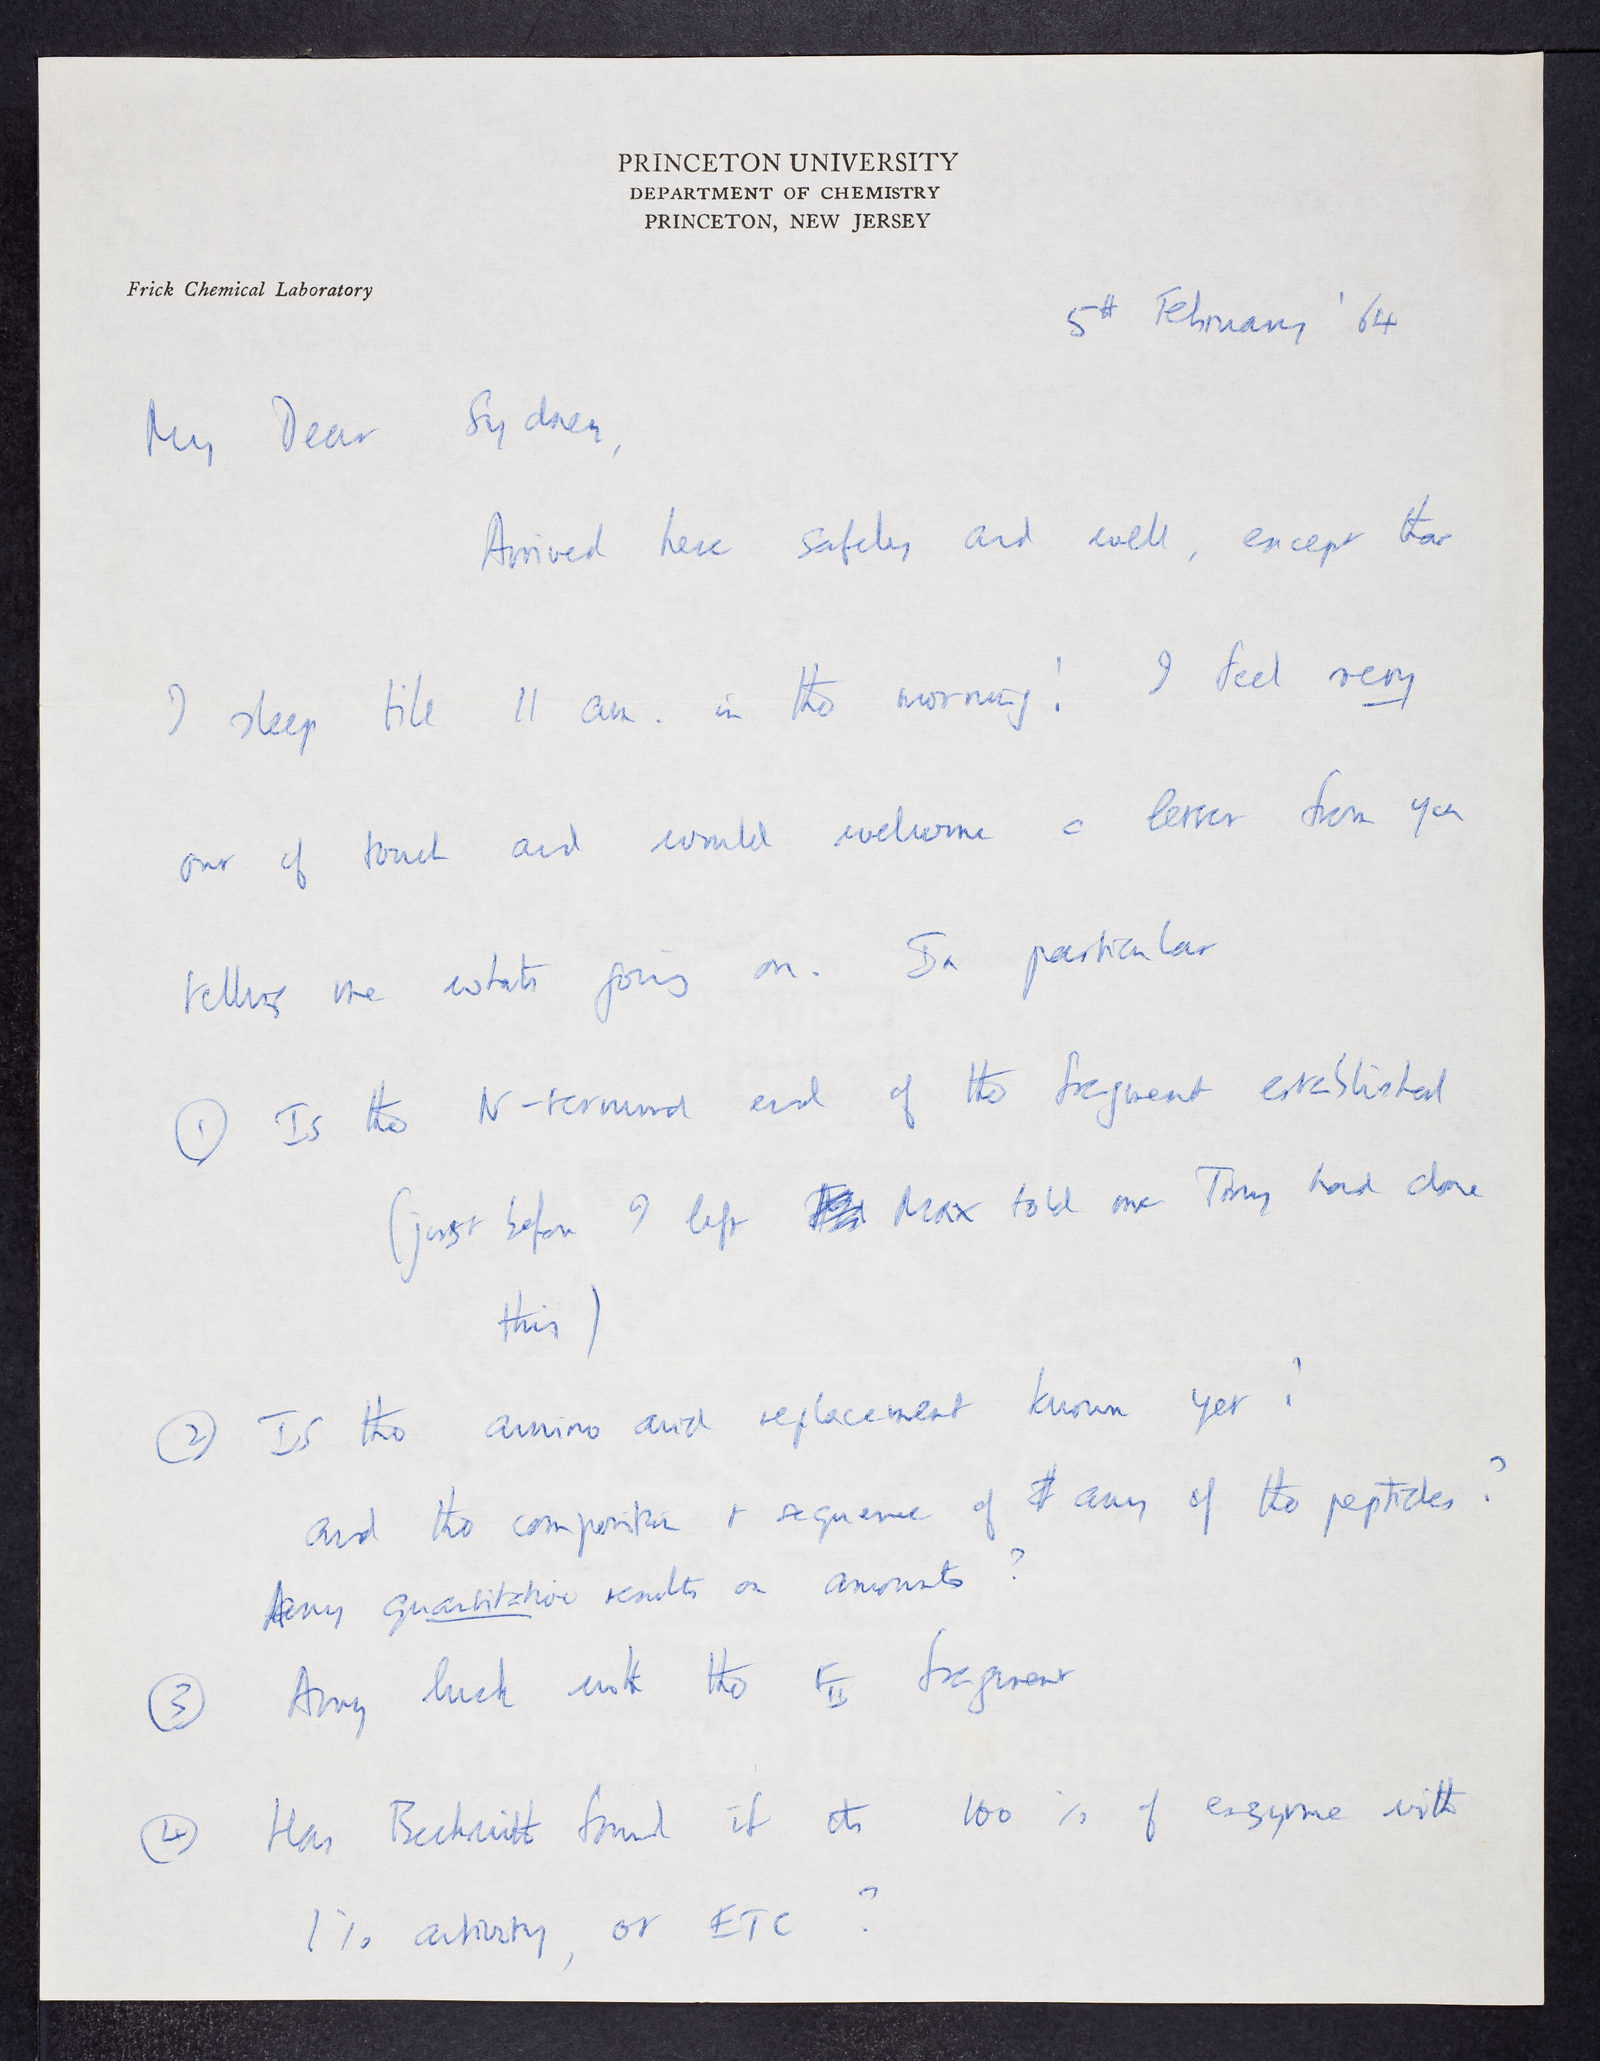 PRINCETON UNIVERSITY
DEPARTMENT OF CHEMISTRY
PRINCETON, NEW JERSEY
Frick Chemical Laboratory
5th February '64
My Dear Sydney,
Arrived here safely and well, except that
I sleep till 11 am. in the morning! I feel very
out of touch and would welcome a letter from you
telling me whats going on. In particular
① Is the N-terminal end of the fragment established
(just before I left Max told me Tony had done
this)
② Is the amino acid replacement known yet?
and the composition + sequence of any of the peptides?
Any quantitative results on amounts?
③ Any luck with the F II fragment
④ Has Beckwitt found if its 100 % of enzyme with
1% activity, or ETC ?